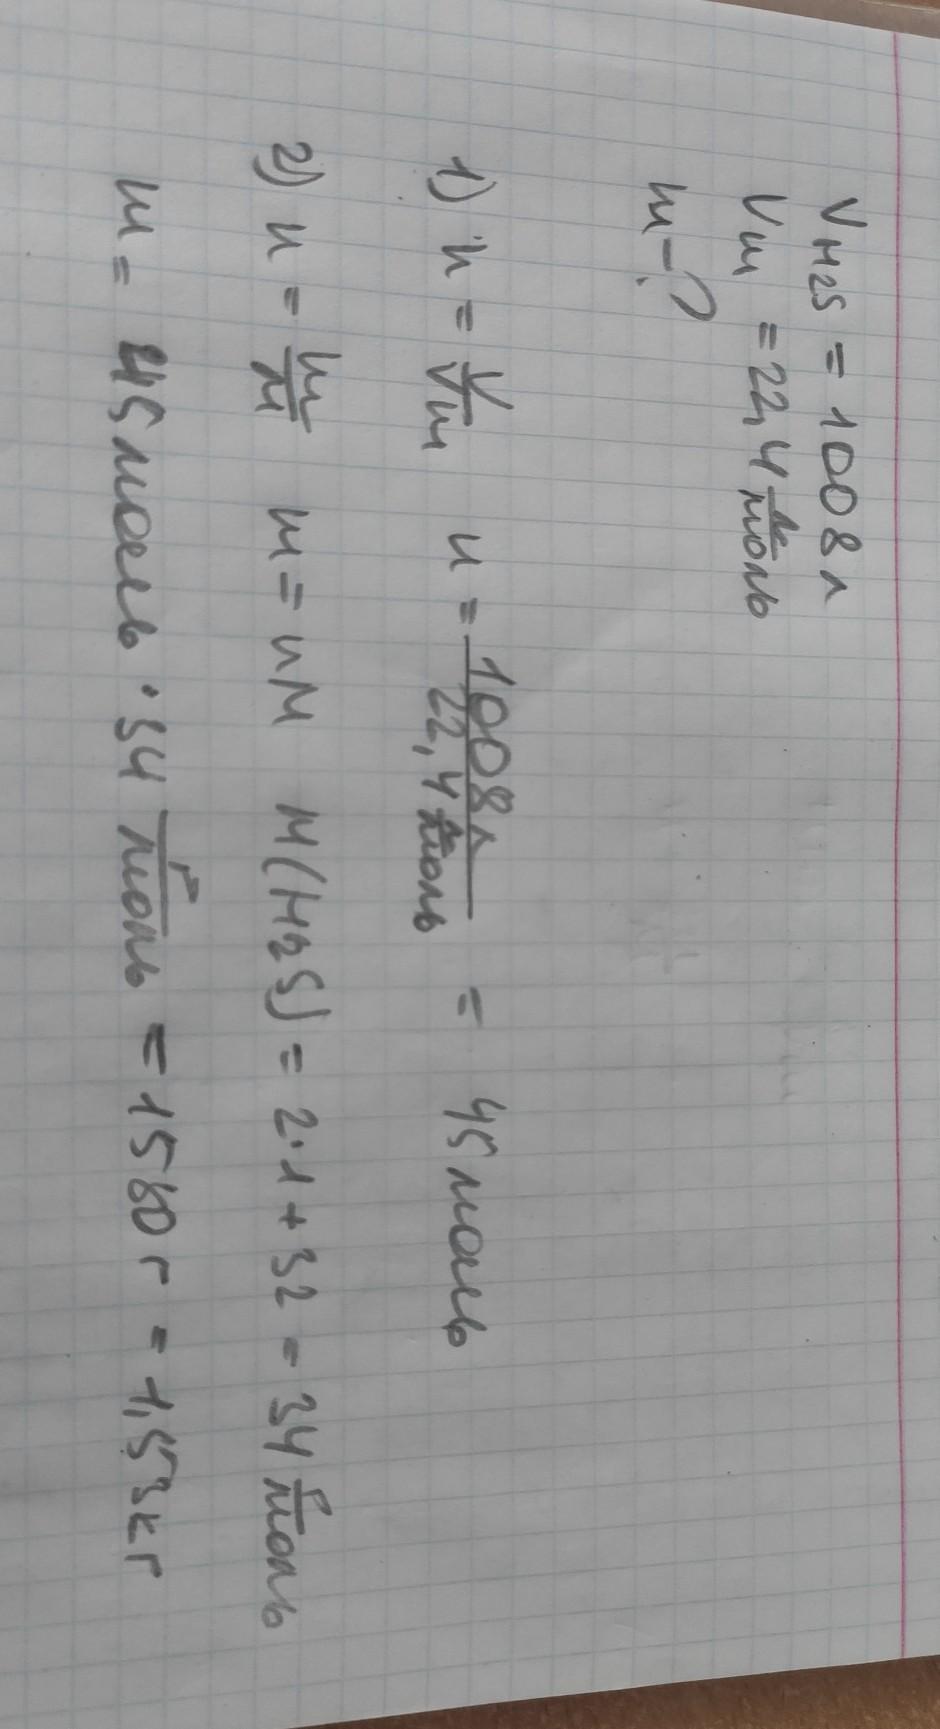 V H2S = 1008 л
Vm = 22,4 л/моль
m - ?
1) n = V/Vm n = 1008 л / 22,4 л/моль = 45 моль
2) n = m/M m = nM M(H2S) = 2·1 + 32 = 34 г/моль
m = 45 моль · 34 г/моль = 1580 г = 1,53 кг